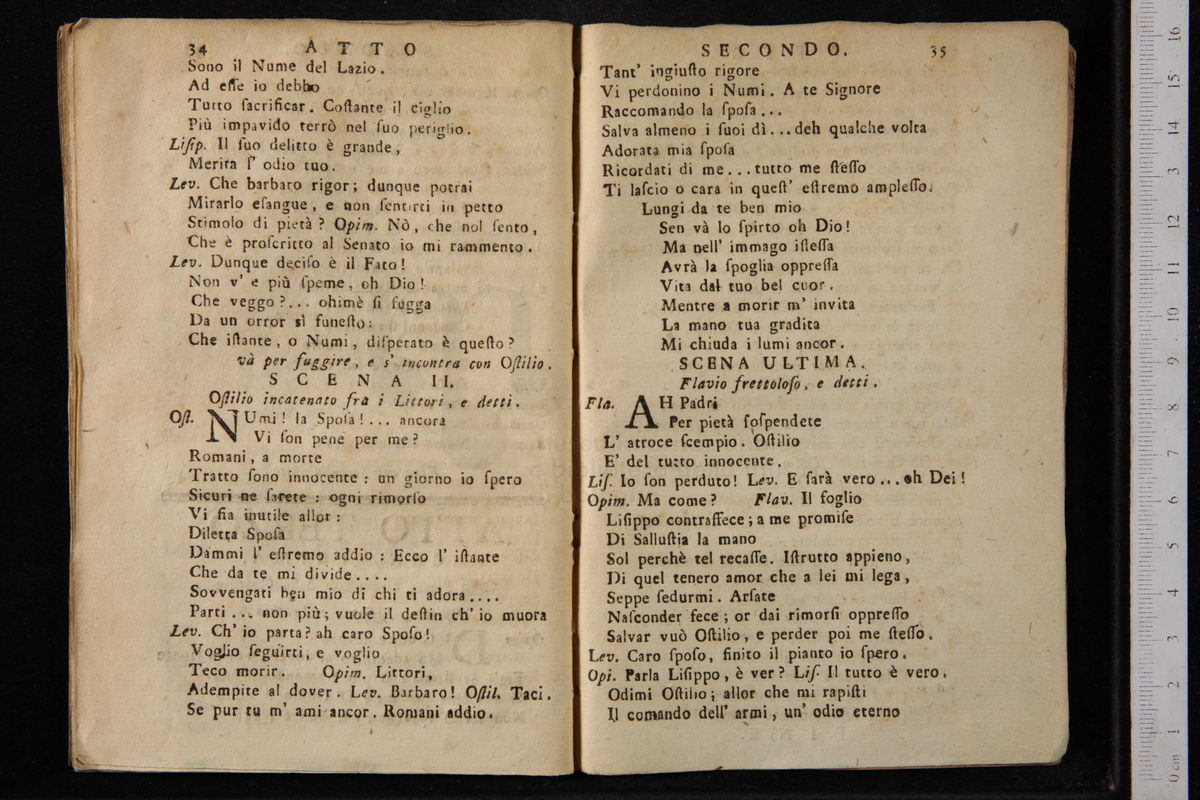 34 ATTO
Sono il Nume del Lazio.
Ad eſſe io debbo
Tutto ſacrificar. Coſtante il ciglio
Più impavido terrò nel ſuo periglio.
Liſip. Il ſuo delitto è grande,
Merita l' odio tuo.
Lev. Che barbaro rigor; dunque potrai
Mirarlo eſangue, e non ſentirti in petto
Stimolo di pietà? Opim. Nò, che nol ſento,
Che è proſcritto al Senato io mi rammento.
Lev. Dunque deciſo è il Fato!
Non v' e più ſpeme, oh Dio!
Che veggo?... ohimè ſi fugga
Da un orror sì funeſto:
Che iſtante, o Numi, diſperato è queſto?
và per fuggire, e s' incontra con Oſtilio.
SCENA II.
Oſtilio incatenato fra i Littori, e detti.
Oſt. NUmi! la Spoſa!... ancora
Vi ſon pene per me?
Romani, a morte
Tratto ſono innocente: un giorno io ſpero
Sicuri ne ſarete: ogni rimorſo
Vi fia inutile allor:
Diletta Spoſa
Dammi l' eſtremo addio: Ecco l' iſtante
Che da te mi divide....
Sovvengati ben mio di chi ti adora....
Parti... non più; vuole il deſtin ch' io muora
Lev. Ch' io parta? ah caro Spoſo!
Voglio ſeguirti, e voglio
Teco morir. Opim. Littori,
Adempite al dover. Lev. Barbaro! Oſtil. Taci.
Se pur tu m' ami ancor. Romani addio.
SECONDO. 35
Tant' ingiuſto rigore
Vi perdonino i Numi. A te Signore
Raccomando la ſpoſa...
Salva almeno i ſuoi dì...deh qualche volta
Adorata mia ſpoſa
Ricordati di me...tutto me ſteſſo
Ti laſcio o cara in queſt' eſtremo ampleſſo.
Lungi da te ben mio
Sen và lo ſpirto oh Dio!
Ma nell' immago iſteſſa
Avrà la ſpoglia oppreſſa
Vita dal tuo bel cuor.
Mentre a morir m' invita
La mano tua gradita
Mi chiuda i lumi ancor.
SCENA ULTIMA.
Flavio frettoloſo, e detti.
Fla. AH Padri
Per pietà ſoſpendete
L' atroce ſcempio. Oſtilio
E' del tutto innocente.
Liſ. Io ſon perduto! Lev. E ſarà vero...oh Dei!
Opim. Ma come? Flav. Il foglio
Liſippo contraffece; a me promiſe
Di Salluſtia la mano
Sol perchè tel recaſſe. Iſtrutto appieno,
Di quel tenero amor che a lei mi lega,
Seppe ſedurmi. Arſate
Naſconder fece; or dai rimorſi oppreſſo
Salvar vuò Oſtilio, e perder poi me ſteſſo.
Lev. Caro ſpoſo, finito il pianto io ſpero.
Opi. Parla Liſippo, è ver? Liſ. Il tutto è vero.
Odimi Oſtilio; allor che mi rapiſti
Il comando dell' armi, un' odio eterno
0 cm 1 2 3 4 5 6 7 8 9 10 11 12 13 14 15 16